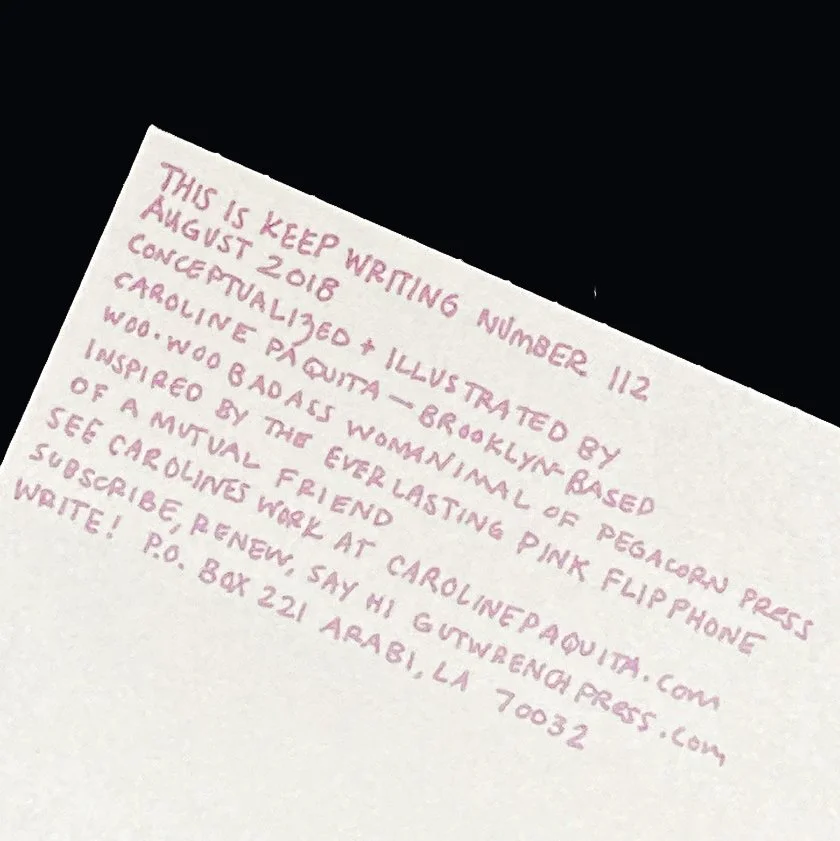 THIS IS KEEP WRITING NUMBER 112
AUGUST 2018
CONCEPTUALIZED + ILLUSTRATED BY
CAROLINE PAQUITA — BROOKLYN-BASED
WOO-WOO BADASS WOMANIMAL OF PEGACORN PRESS
INSPIRED BY THE EVERLASTING PINK FLIP PHONE
OF A MUTUAL FRIEND
SEE CAROLINES WORK AT CAROLINEPAQUITA.COM
SUBSCRIBE, RENEW, SAY HI GUTWRENCHPRESS.COM
WRITE! P.O. BOX 221 ARABI, LA 70032